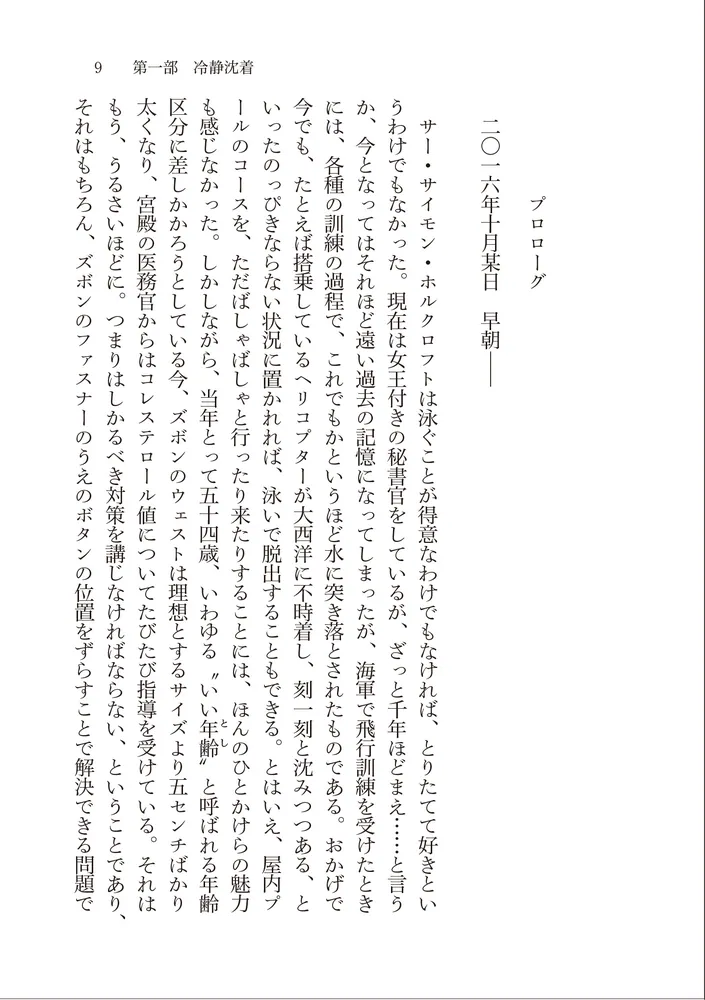 9　第一部　冷静沈着
プロローグ
二〇一六年十月某日　早朝――
サー・サイモン・ホルクロフトは泳ぐことが得意なわけでもなければ、とりたてて好きとい
うわけでもなかった。現在は女王付きの秘書官をしているが、ざっと千年ほどまえ……と言う
か、今となってはそれほど遠い過去の記憶になってしまったが、海軍で飛行訓練を受けたとき
には、各種の訓練の過程で、これでもかというほど水に突き落とされたものである。おかげで
今でも、たとえば搭乗しているヘリコプターが大西洋に不時着し、刻一刻と沈みつつある、と
いったのっぴきならない状況に置かれれば、泳いで脱出することもできる。とはいえ、屋内プ
ールのコースを、ただばしゃばしゃと行ったり来たりすることには、ほんのひとかけらの魅力
も感じなかった。しかしながら、当年とって五十四歳、いわゆる〝いい年齢〟と呼ばれる年齢
とし
区分に差しかかろうとしている今、ズボンのウェストは理想とするサイズより五センチばかり
太くなり、宮殿の医務官からはコレステロール値についてたびたび指導を受けている。それは
もう、うるさいほどに。つまりはしかるべき対策を講じなければならない、ということであり、
それはもちろん、ズボンのファスナーのうえのボタンの位置をずらすことで解決できる問題で